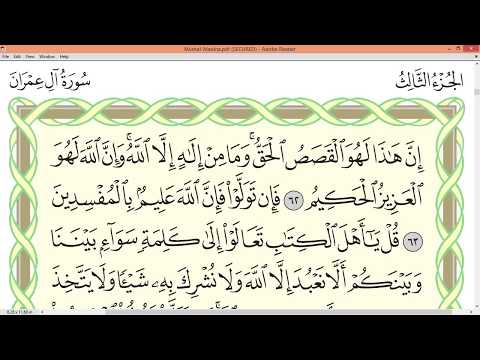 Mushaf-Madina.pdf (SECURED) - Adobe Reader
File Edit View Window Help
سُورَةُ آلِ عِمْرَانَ
الجُزْءُ الثَّالِثُ
إِنَّ هَٰذَا لَهُوَ ٱلْقَصَصُ ٱلْحَقُّ ۚ وَمَا مِنْ إِلَٰهٍ إِلَّا ٱللَّهُ ۚ وَإِنَّ ٱللَّهَ لَهُوَ
ٱلْعَزِيزُ ٱلْحَكِيمُ ٦٢ فَإِن تَوَلَّوْا۟ فَإِنَّ ٱللَّهَ عَلِيمٌۢ بِٱلْمُفْسِدِينَ
٦٣ قُلْ يَٰٓأَهْلَ ٱلْكِتَٰبِ تَعَالَوْا۟ إِلَىٰ كَلِمَةٍ سَوَآءٍۭ بَيْنَنَا
وَبَيْنَكُمْ أَلَّا نَعْبُدَ إِلَّا ٱللَّهَ وَلَا نُشْرِكَ بِهِۦ شَيْـًٔا وَلَا يَتَّخِذَ